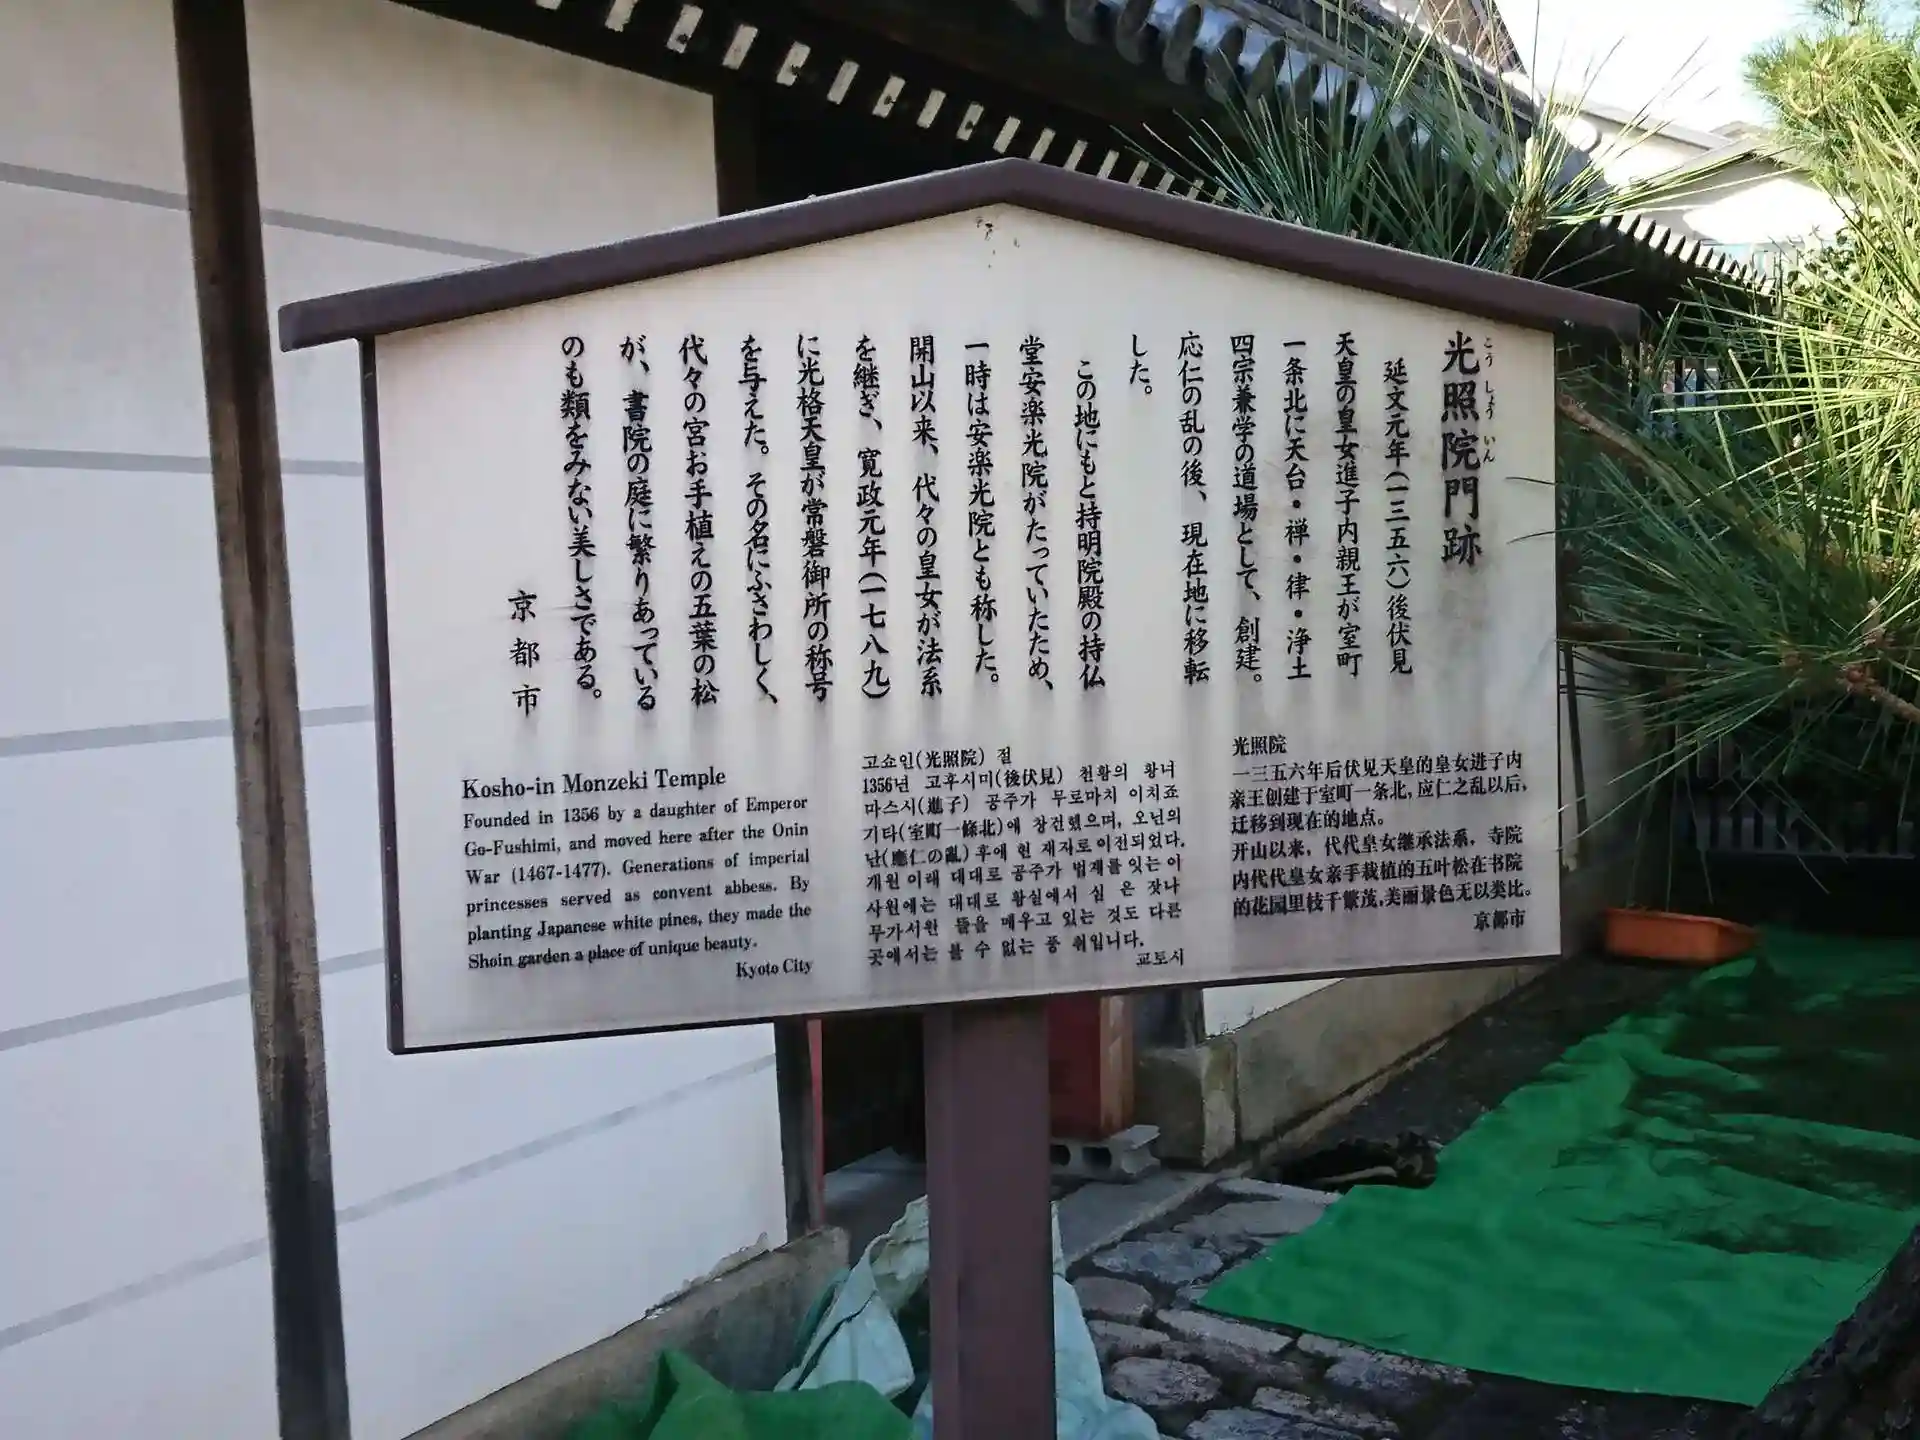 光照院門跡
こうしょういん
延文元年(一三五六)後伏見
天皇の皇女進子内親王が室町
一条北に天台・禅・律・浄土
四宗兼学の道場として、創建。
応仁の乱の後、現在地に移転
した。
この地にもと持明院殿の持仏
堂安楽光院がたっていたため、
一時は安楽光院とも称した。
開山以来、代々の皇女が法系
を継ぎ、寛政元年(一七八九)
に光格天皇が常磐御所の称号
を与えた。その名にふさわしく、
代々の宮お手植えの五葉の松
が、書院の庭に繁りあっている
のも類をみない美しさである。
京都市
Kosho-in Monzeki Temple
Founded in 1356 by a daughter of Emperor
Go-Fushimi, and moved here after the Onin
War (1467-1477). Generations of imperial
princesses served as convent abbess. By
planting Japanese white pines, they made the
Shoin garden a place of unique beauty.
Kyoto City
고쇼인(光照院) 절
1356년 고후시미(後伏見) 천황의 황녀
마스시(進子) 공주가 무로마치 이치죠
기타(室町一條北)에 창건했으며, 오닌의
난(應仁の亂)후에 현 재지로이전되었다.
개원 이래 대대로 공주가 법계를 잇는 이
사원에는 대대로 황실에서 심 은 잣나
무가서원 뜰을 메우고 있는 것도 다른
곳에서는 볼 수 없는 풍 취입니다.
교토시
光照院
一三五六年后伏见天皇的皇女进子内
亲王创建于室町一条北,应仁之乱以后,
迁移到现在的地点。
开山以来，代代皇女继承法系，寺院
内代代皇女亲手栽植的五叶松在书院
的花园里枝干繁茂,美丽景色无以类比。
京都市